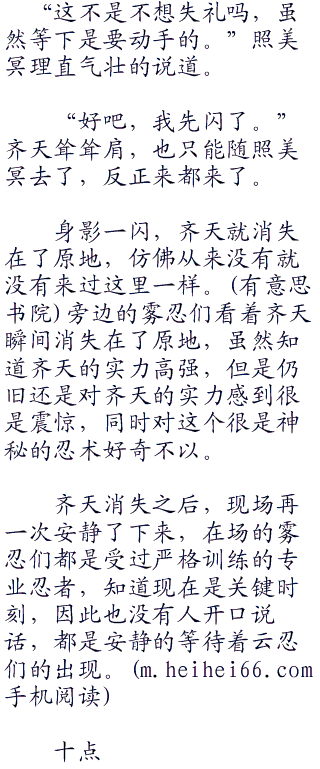 “这不是不想失礼吗，虽
然等下是要动手的。”照美
冥理直气壮的说道。
“好吧，我先闪了。”
齐天耸耸肩，也只能随照美
冥去了，反正来都来了。
身影一闪，齐天就消失
在了原地，仿佛从来没有就
没有来过这里一样。(有意思
书院)旁边的雾忍们看着齐天
瞬间消失在了原地，虽然知
道齐天的实力高强，但是仍
旧还是对齐天的实力感到很
是震惊，同时对这个很是神
秘的忍术好奇不以。
齐天消失之后，现场再
一次安静了下来，在场的雾
忍们都是受过严格训练的专
业忍者，知道现在是关键时
刻，因此也没有人开口说
话，都是安静的等待着云忍
们的出现。(m.heihei66.com
手机阅读)
十点